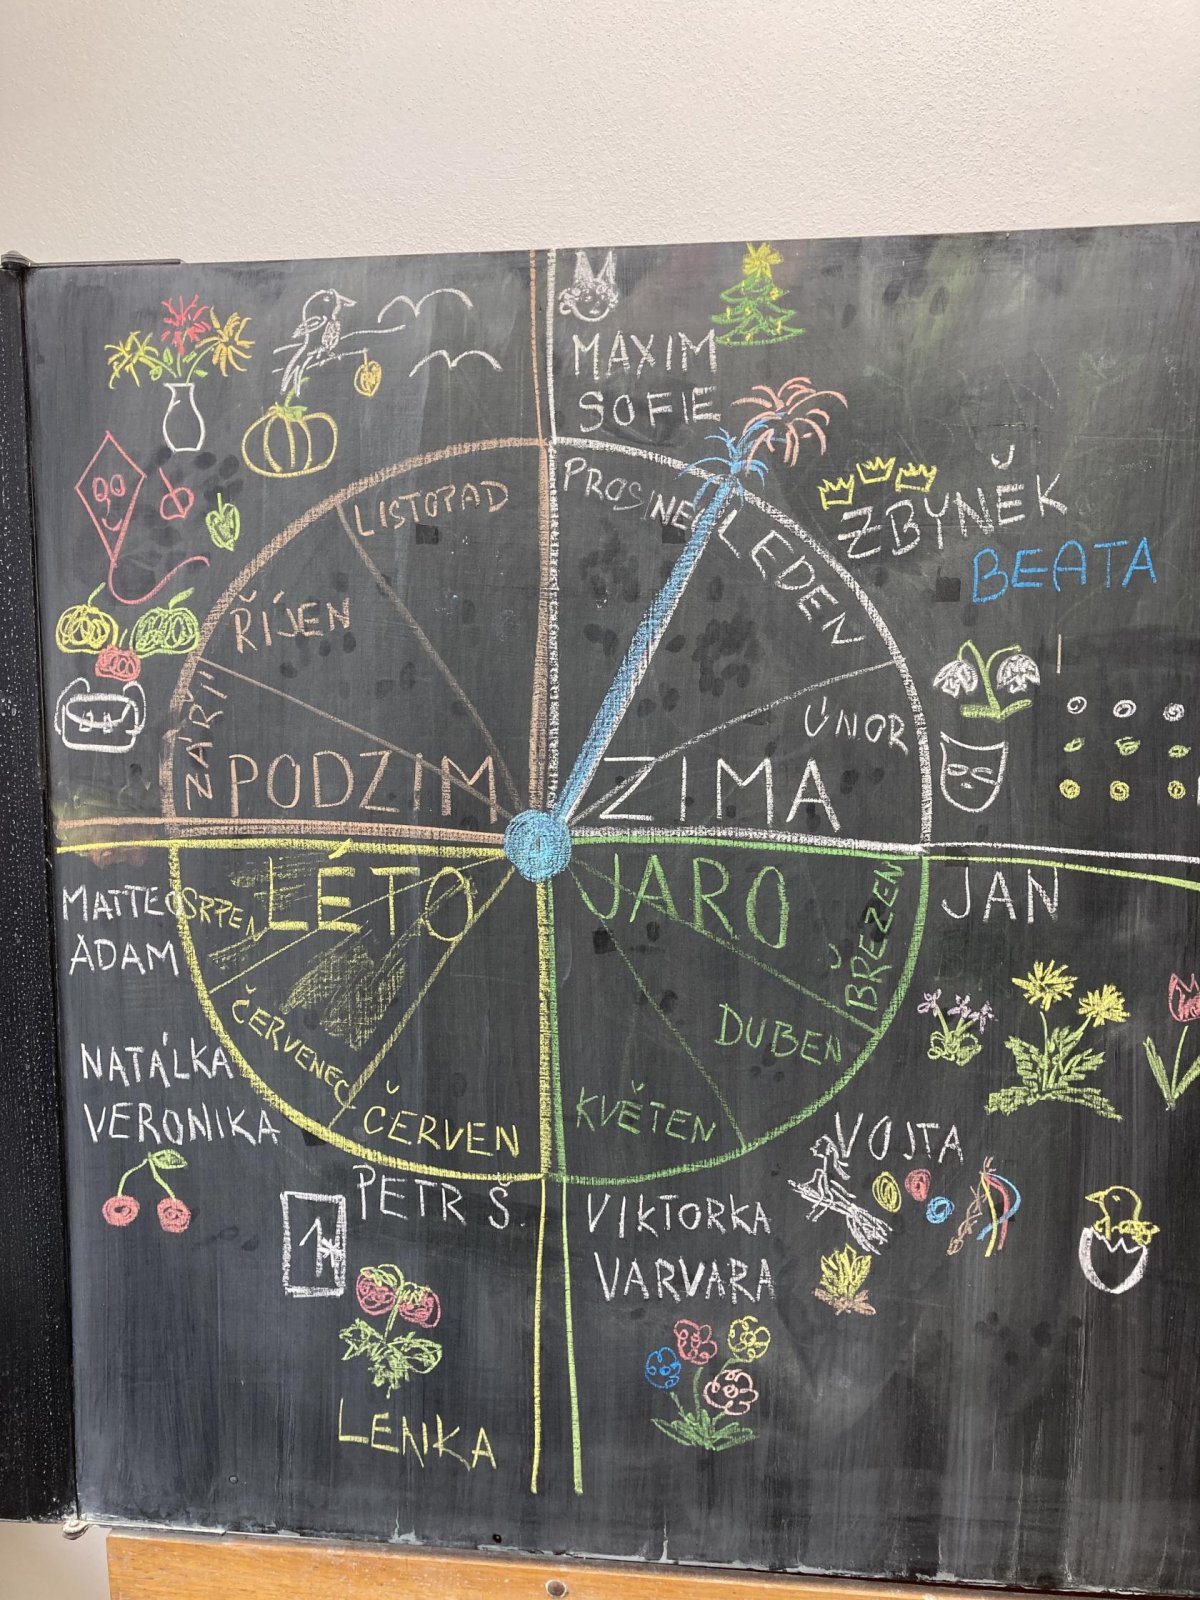 MAXIM
SOFIE
LISTOPAD
PROSINEC
LEDEN
ZBYNĚK
BEATA
ŘÍJEN
ZÁŘÍ
ÚNOR
PODZIM
ZIMA
LÉTO
JARO
MATTEO
SRPEN
ADAM
BŘEZEN
JAN
ČERVENEC
DUBEN
NATÁLKA
VERONIKA
ČERVEN
KVĚTEN
VOJTA
PETR Š.
1
VIKTORKA
VARVARA
LENKA